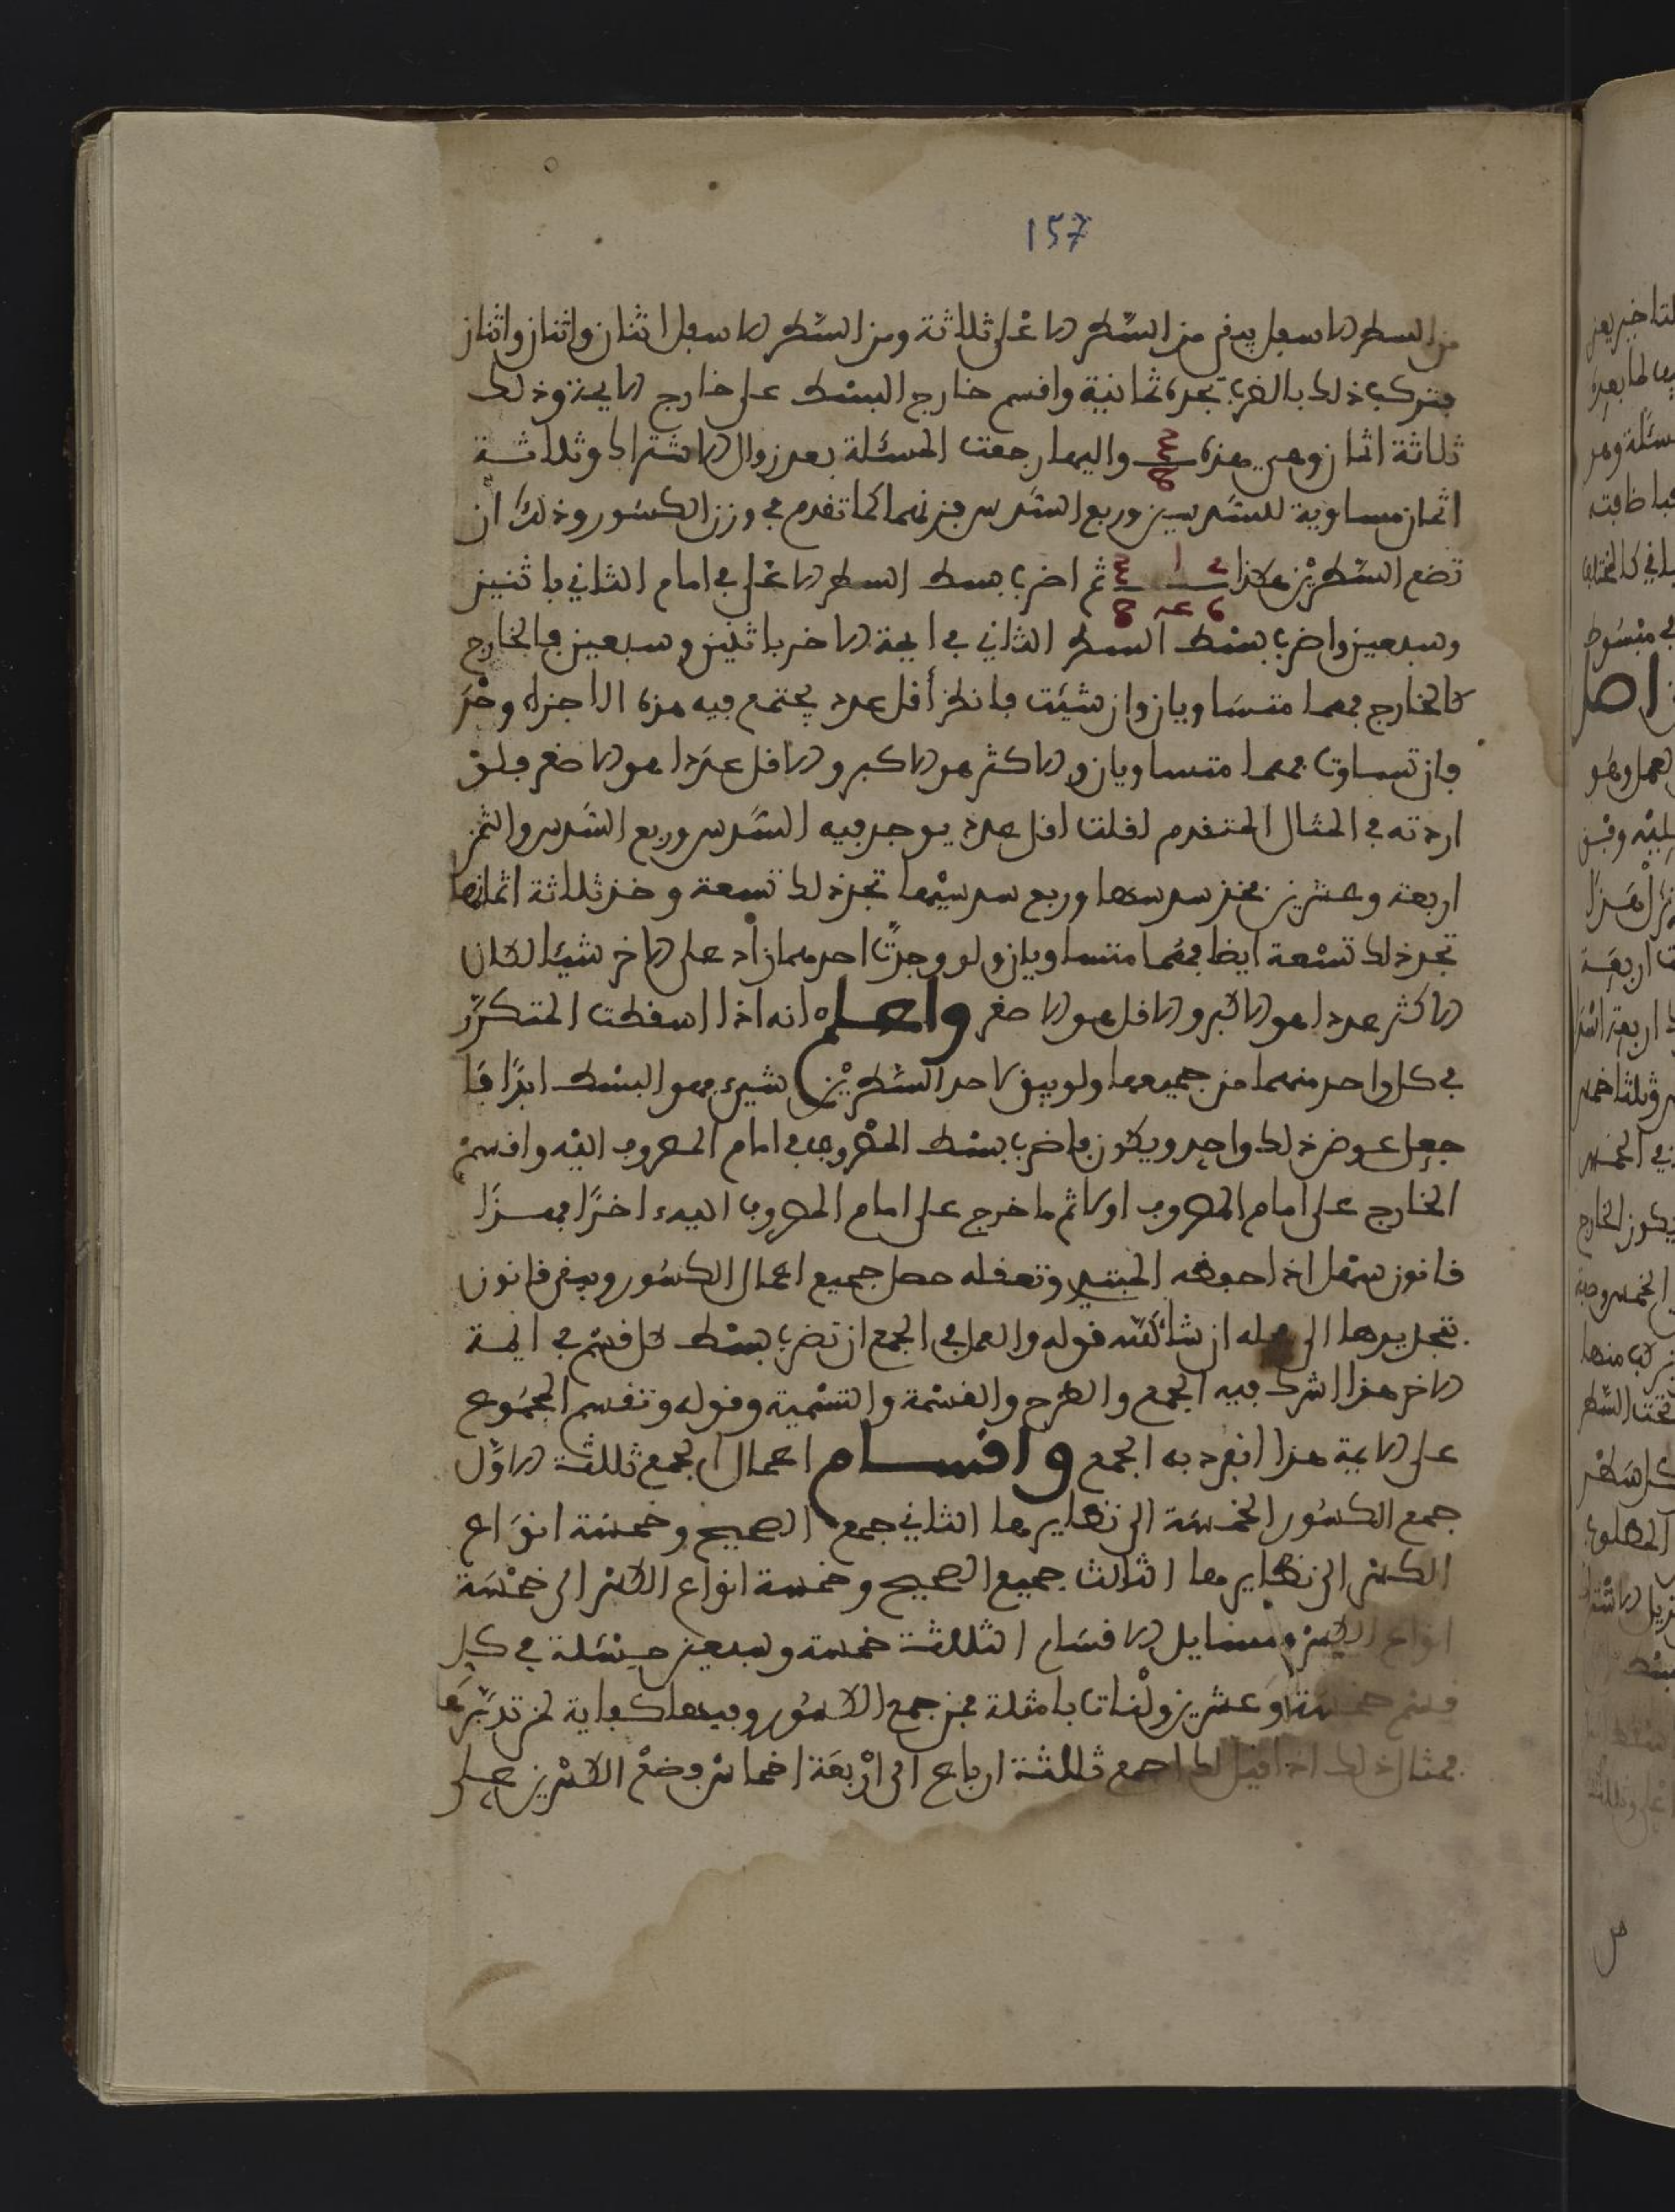 157
من السطر الاسفل يبقى من السطر الاعلى ثلاثة ومن السطر الاسفل اثنان واثنان واثنان
فتركب ذلك بالضرب تجده ثمانية واقسم خارج البسط على خارج الايمة وذلك
ثلاثة اثمان وهي هذه 3/8 واليها رجعت المسئلة بعد زوال الاشتراك وثلاثة
اثمان مساوية للسدسين وربع السدس فزنهما كما تقدم في وزن الكسور وذلك ان
تضع السطرين هكذا ثم اضرب بسط السطر الاعلى في امام الثاني باثنين
وسبعين واضرب بسط السطر الثاني في ايمة الاخر باثنين وسبعين فالخارج
كالخارج فهما متساويان وان شيئت فانظر أقل عدد يجتمع فيه هذه الاجزاء وخذ
فان تساوت فهما متساويان والاكثر هو الاكبر والاقل عددا هو الاصغر فلو
اردته في المثال المتقدم لقلت اقل عدد يوجد فيه السدس وربع السدس والثمن
اربعة وعشرين فخذ سدسها وربع سدسيها تجد ذلك تسعة وخذ ثلاثة اثمانها
تجد ذلك تسعة ايضا فهما متساويان ولو وجدت احدهما زاد على الاخر شيئا لكان
الاكثر عددا هو الاكبر والاقل هو الاصغر واعلم انه اذا اسقطت المتكرر
في كل واحد منهما من جميعها ولو يبق لاحد السطرين شيء فهو البسط ابدا فا
جعل عوض ذلك واحد ويكون فاضرب بسط المضروب في امام المضروب اليه واقسم
الخارج على امام المضروب اولا ثم ما خرج على امام المضروب اليه اخرا فهذا
قانون سهل اذا حفظه المبتدي وتعقله حصل جميع اعمال الكسور وبيقى قانون
تجديدها الى محله ان شا الله قوله والعمل في الجمع ان تضرب بسط كل قسم في ايمة
الاخر هذا اشرك فيه الجمع والطرح والقسمة والتسمية وقوله وتقسم المجموع
على الايمة هذا انفرد به الجمع واقسام اعمال الجمع ثلثة الاول
جمع الكسور الخمسة الى نظايرها الثاني جمع الصحيح وخمسة انواع
الكسر الى نظايرها الثالث جميع الصحيح وخمسة انواع الكسر الى خمسة
انواع الكسر ومسايل الاقسام الثلاثة خمسة وسبعين مسئلة في كل
قسم خمسة وعشرين ولنات بامثلة من جمع الكسور وفيها كفاية لمن تدبرها
فمثال ذلك اذا قيل لك اجمع ثلثة ارباع الى اربعة اخماس فضع الكسرين على